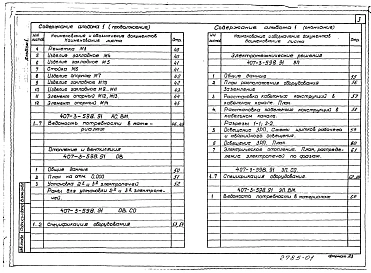 Содержание альбома I (продолжение)
NN листов
Наименование и обозначение документов
Наименование листа
Стр.
4 Решетка М3
5 Изделие закладное М4
6 Изделие закладное М5 41
7 Стойка М6
8 Изделие опорное М7
9 Изделие закладное
10 Изделие закладное
11 Элемент опорный М12, М13 44
12 Элемент опорный М14 45
407-3-598.91 АС.ВМ.
1..2 Ведомость потребности в материалах
Отопление и вентиляция
407-3-598.91 ОВ
1 Общие данные 50
2 План на отм. 0,000 51
3 Установка электропечей 52
Рамы для установки электропечей.
407-3-598.91 ОВ.СО
1..2 Спецификация оборудования 53,54
Содержание альбома I (окончание)
NN листов
Наименование и обозначение документов
Наименование листа
Стр.
Электротехнические решения
407-3-598.91 ЭЛ
1 Общие данные 55
2 План расположения оборудования 56
Заземление
3 Расстановка кабельных конструкций в 57
кабельном канале. План
4 Расстановка кабельных конструкций в 58
кабельном канале.
Разрезы 1-1; 2-2
5 Освещение ЗРУ. Схемы щитков рабочего 59
и аварийного освещения.
6 Освещение ЗРУ. План 60
7 Электрическое отопление. План, распределение 61
электропечей по фазам.
407-3-598.91 ЭЛ.СО
1..2 Спецификация оборудования
407-3-598.91 ЭЛ.ВМ.
1 Ведомость потребности в материалах
2785-01
Формат А3
3